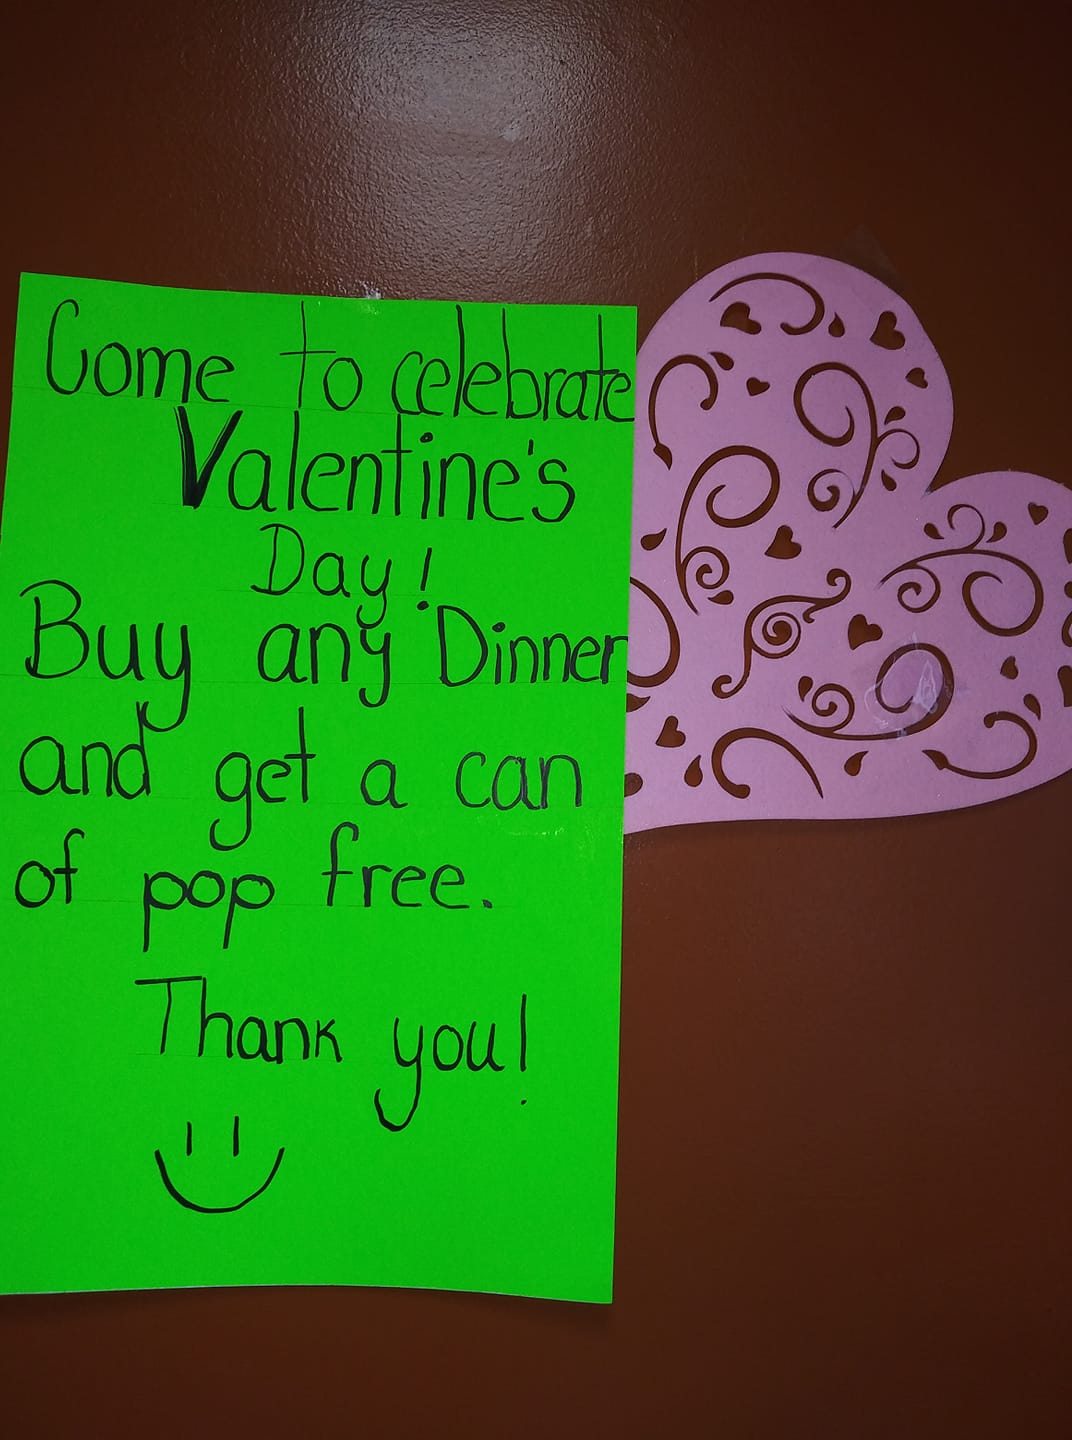 Come to celebrate
Valentine's
Day!
Buy any Dinner
and get a can
of pop free.
Thank you!